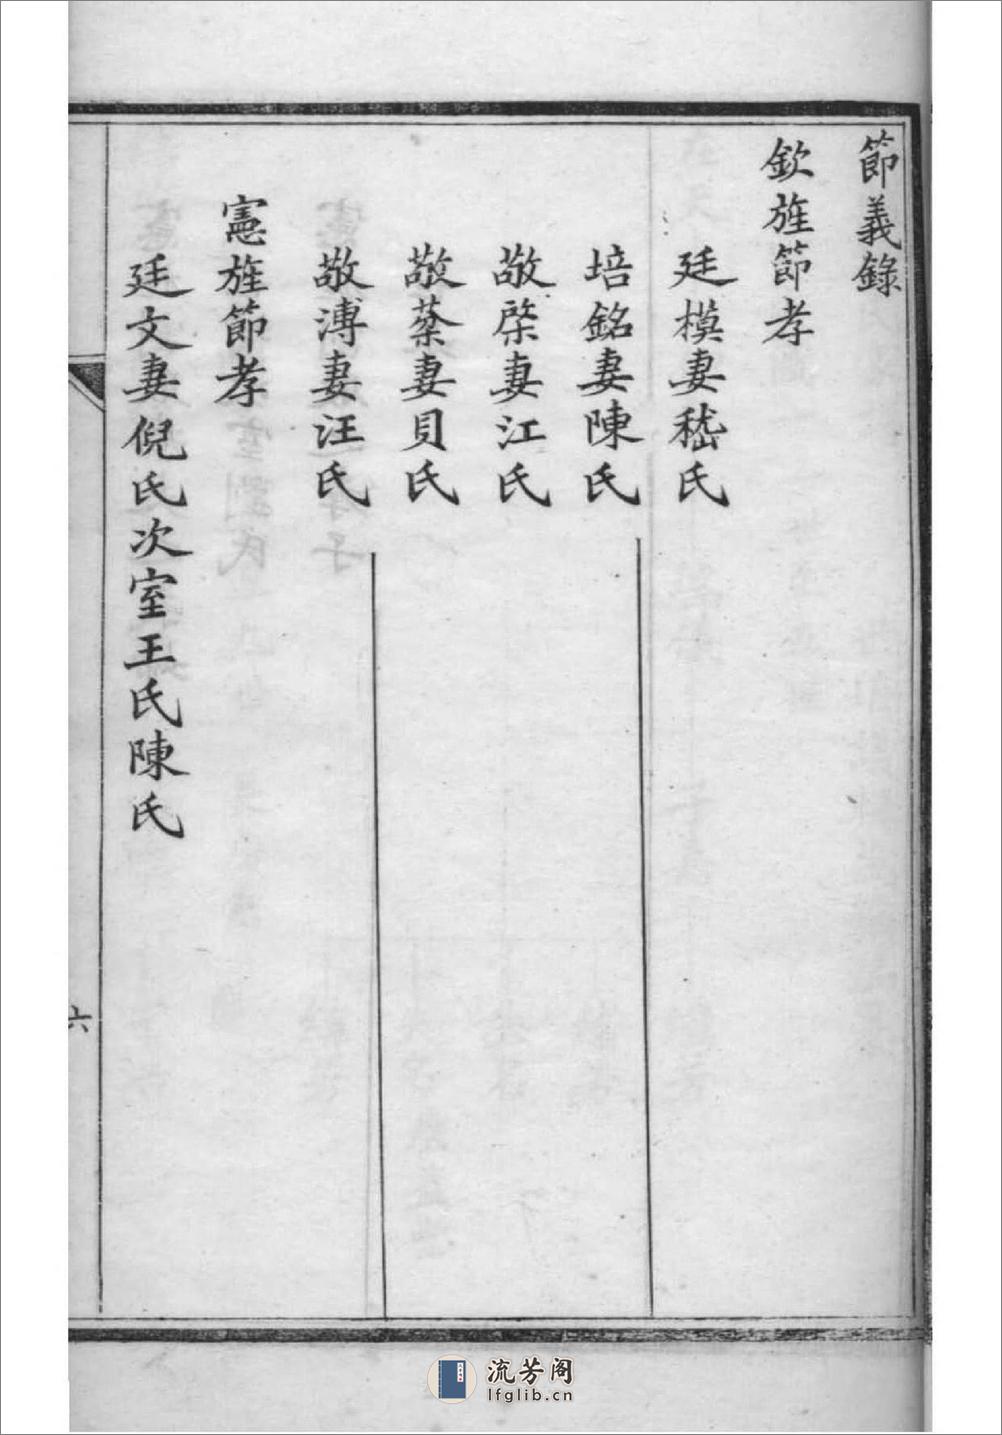 節義錄
欽旌節孝
廷模妻嵇氏
培銘妻陳氏
敬棨妻江氏
敬蔡妻貝氏
敬溥妻汪氏
憲旌節孝
廷文妻倪氏次室王氏陳氏
六
流芳阁
lfglib.cn